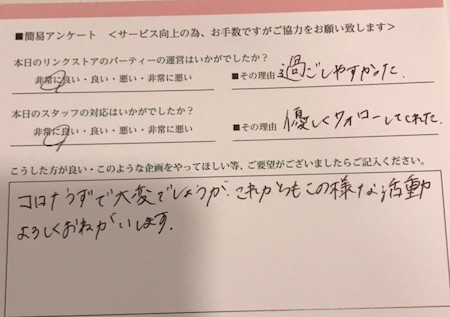 ■簡易アンケート ＜サービス向上の為、お手数ですがご協力をお願い致します＞
本日のリンクストアのパーティーの運営はいかがでしたか？
非常に良い・良い・悪い・非常に悪い ■その理由 過ごしやすかった.
本日のスタッフの対応はいかがでしたか？
非常に良い・良い・悪い・非常に悪い ■その理由 優しくフォローしてくれた.
こうした方が良い・このような企画をやってほしい等、ご要望がございましたらご記入ください。
コロナうずで大変でしょうが、これからもこの様な活動
よろしくおねがいします.